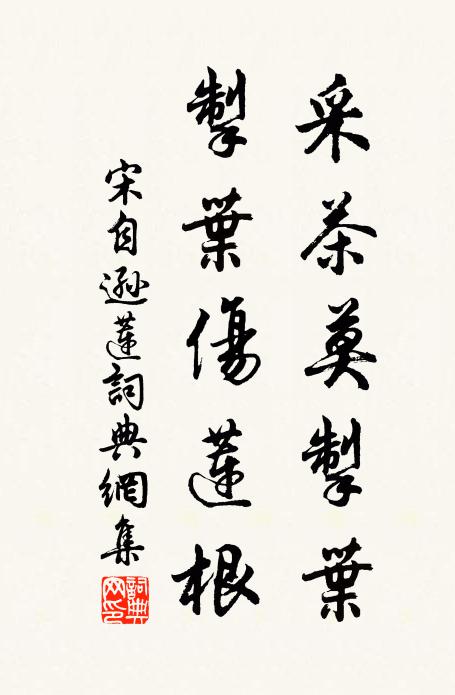 采茶莫掣葉
掣葉傷蓮根
宋自遜蓮詞典網集
詞典网印